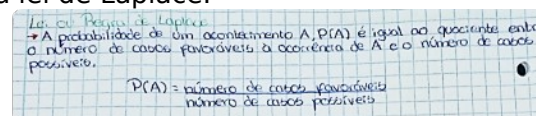 a lei de Laplace.
Lei ou Regra de Laplace
→ A probabilidade de um acontecimento A, P(A) é igual ao quociente entre
o número de casos favoráveis à ocorrência de A e o número de casos
possíveis.
P(A) = número de casos favoráveis
número de casos possíveis